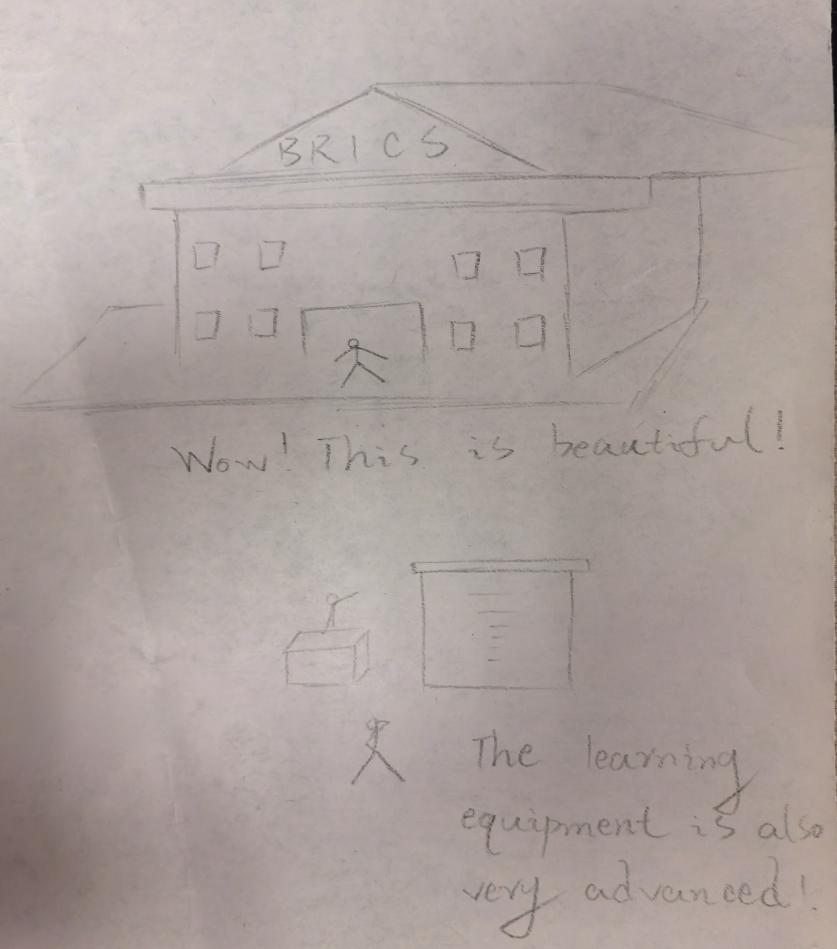 BRICS
Wow! This is beautiful!
The learning
equipment is also
very advanced!